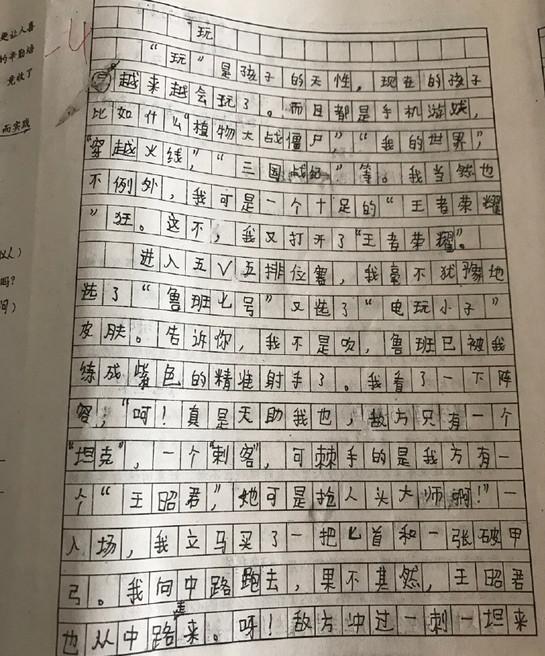 更让人喜
的辛勤培
竟收了
而实践
以人)
吗?
问)
-4
玩
“玩”是孩子的天性,现在的孩子
越来越会玩了。而且都是手机游戏,
比如什么“植物大战僵尸”,“我的世界”,
“穿越火线”,“三国战纪”等。我当然也
不例外,我可是一个十足的“王者荣耀
”狂。这不,我又打开了“王者荣耀”。
进入五V五排位赛,我毫不犹豫地
选了“鲁班七号”又选了“电玩小子”
皮肤。告诉你,我不是吹,鲁班已被我
练成紫色的精准射手了。我看了一下阵
容,“呵!真是天助我也,敌方只有一个
“坦克”,一个“刺客”,可棘手的是我方有一
个“王昭君”,她可是抢人头大师啊!”一
入场,我立马买了一把匕首和一张破甲
弓。我向中路跑去,果不其然,王昭君
也从中路走来。呀!敌方冲过一刺一坦来